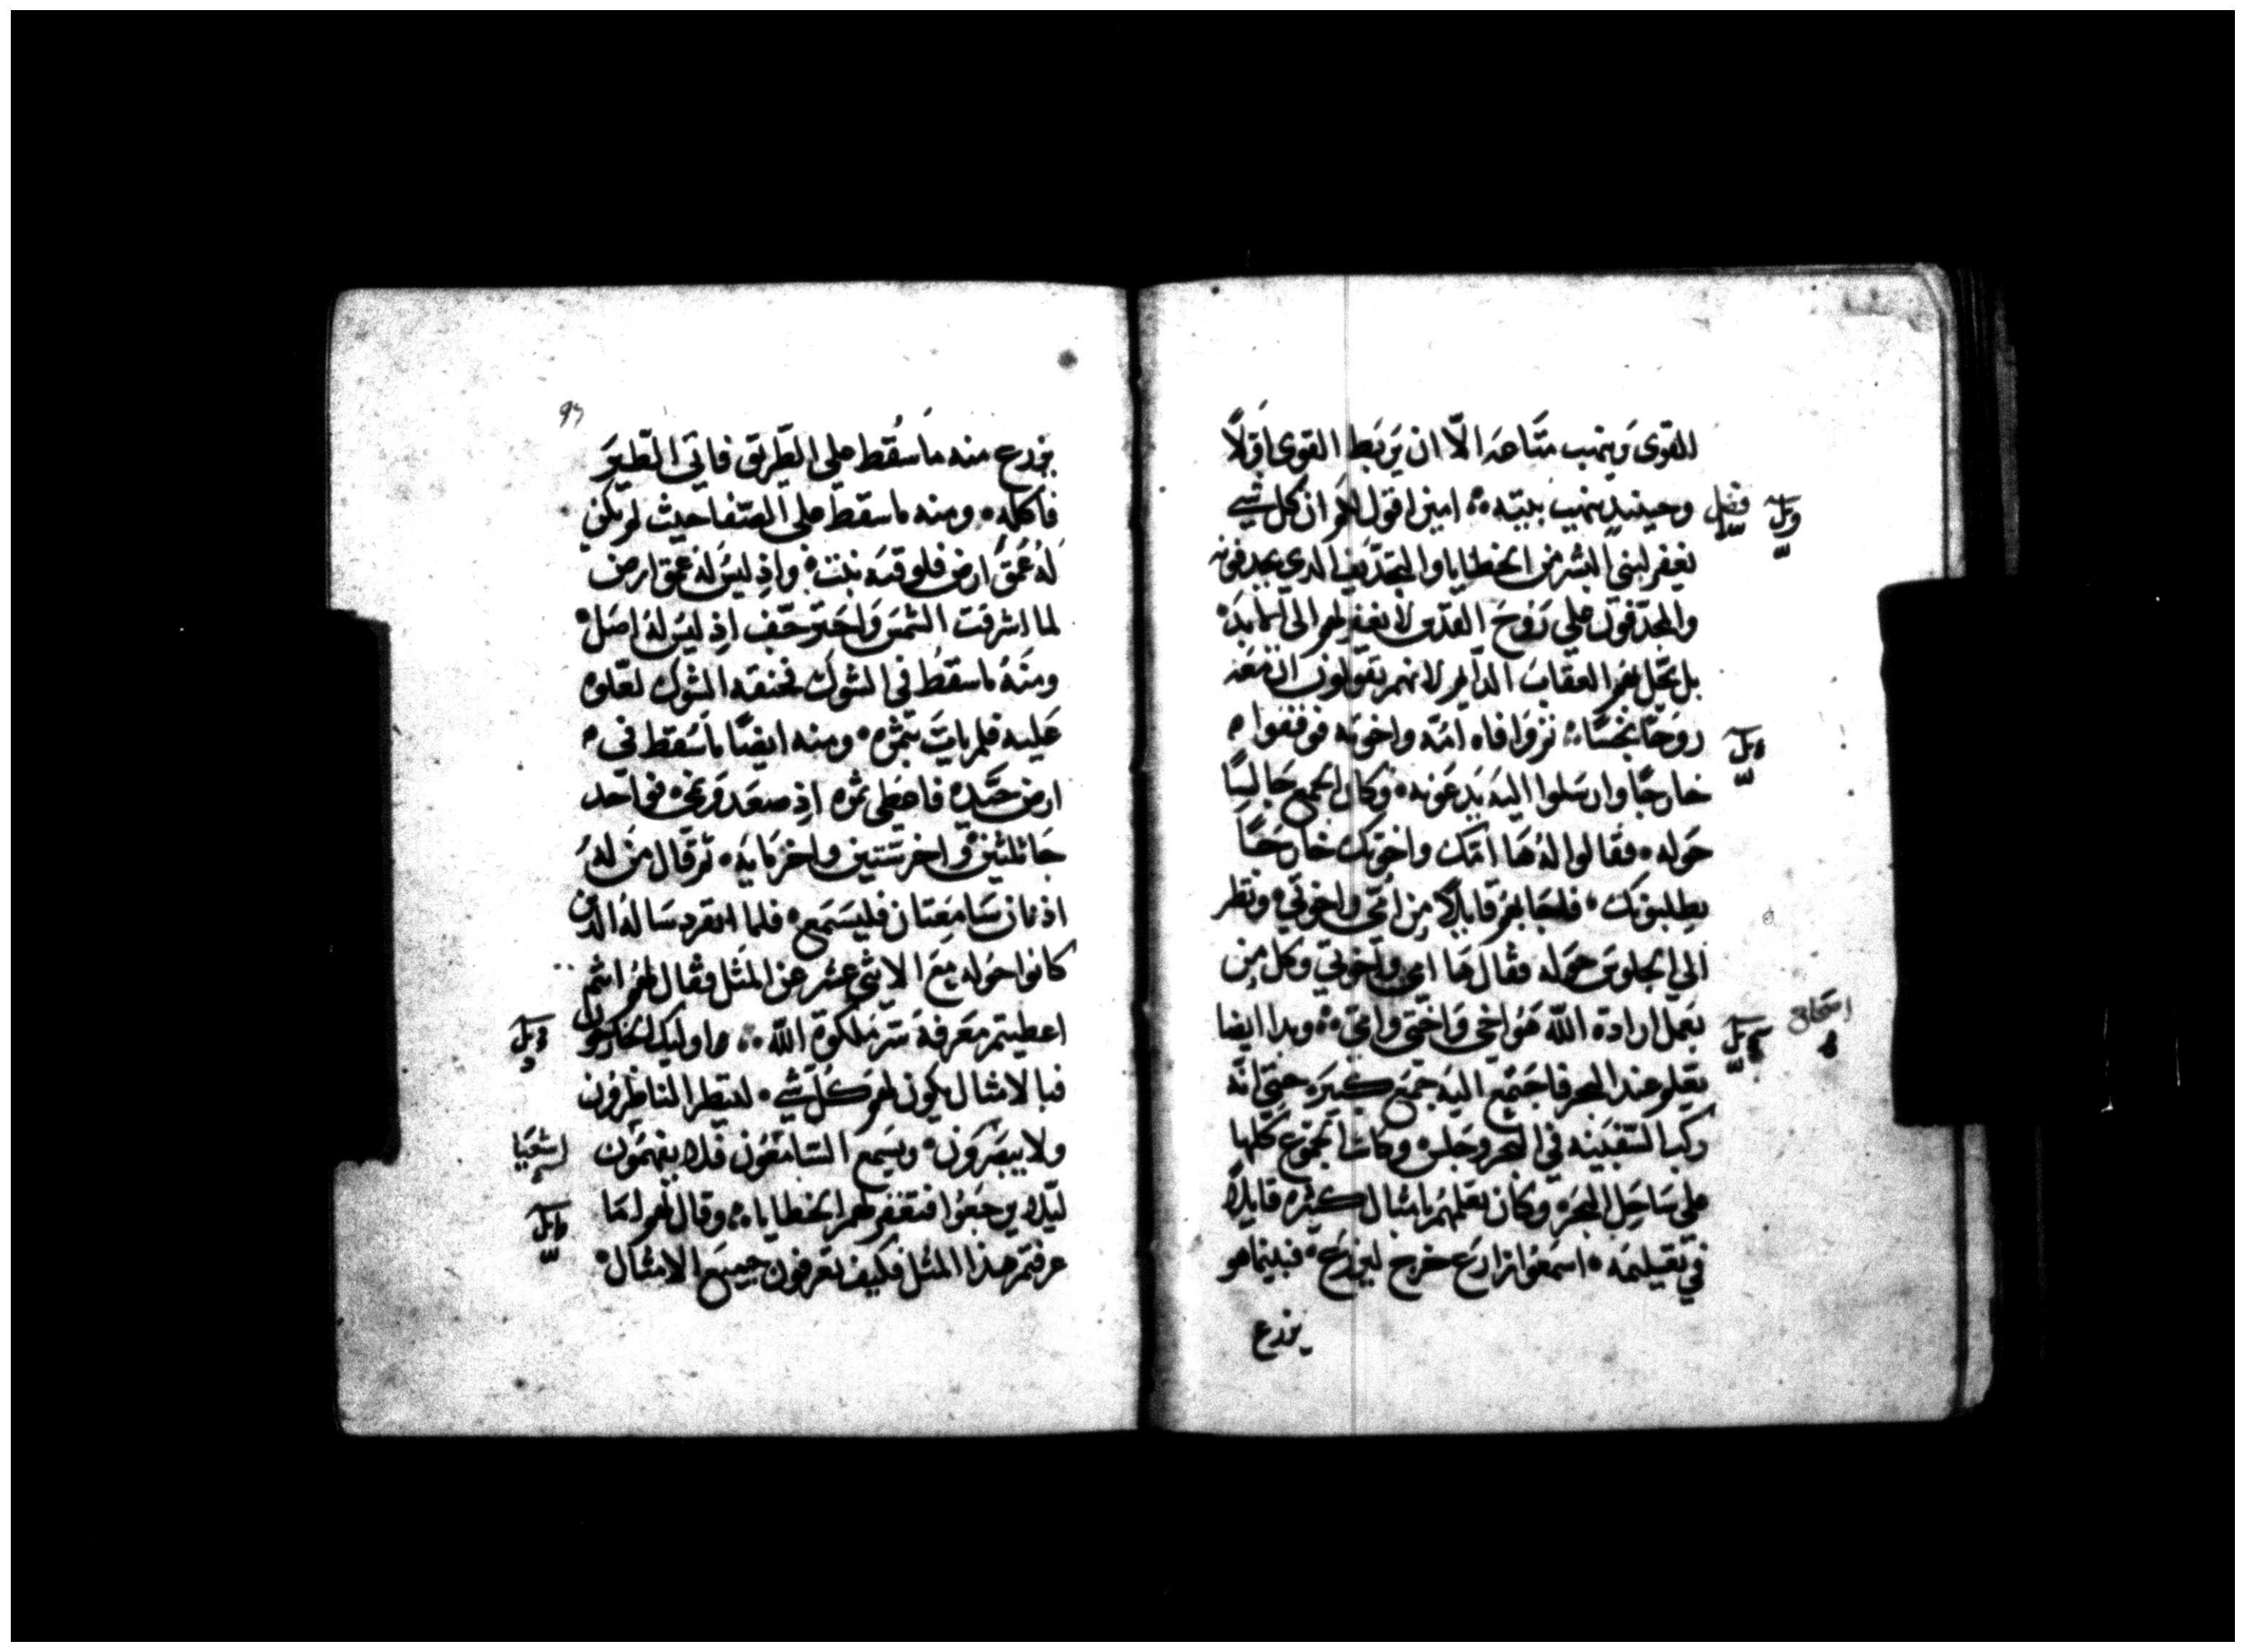 القوى وينهب متاعه الّا ان يربط القوى اوّلاً
وحينيدٍ ينهب بيته امين اقول لكم ان كل شي
يغفر لبني البشر من الخطايا والتجديف الدي يجدفونه
والمجدّفون على روح القدس لا يغفر لهم الى الابد
بل يحل بهم العقاب الدايم لانهم يقولون ان معه
روحًا نجسًا ثم وافاه امّه واخوته فوقفوا
خارجًا وارسلوا اليه يدعونه وكان الجمع جالسًا
حوله فقالوا له ها امّك واخوتك خارجًا
يطلبونك فاجابهم قايلاً من امّي واخوتي ونظر
الى الجلوس حوله فقال ها امي واخوتي وكل من
يعمل ارادة الله هو اخي واختي وامّي وبدا ايضا
يعلم عند البحر فاجتمع اليه جمع كبير حتى انّه
ركب السّفينه في البحر وجلس وكانت الجموع كلها
على ساحل البحر وكان يعلمهم بامثال كثيره قايلاً
في تعليمه اسمعوا زارع خرج ليزرع فبينما هو
يزرع
فصل
اسحاق
٩٣
يزرع منه ما سقط على الطّريق فاتى الطّير
فاكله ومنه ما سقط على الصّفا حيث لم يكن
له عمق ارض فلوقته نبت واذ ليس له عمق ارض
لما اشرقت الشمس واحتر جف اذ ليس له اصل
ومنه ما سقط في الشوك فخنقه الشوك لعلوه
عليه فلم يات بثمره ومنه ايضًا ما سقط في
ارض جيّده فاعطى ثمره اذ صعد ونمى فواحد
جا بثلثين واخر ستين واخر مايه ثم قال من له
اذنان سامعتان فليسمع فلما انفرد ساله الدين
كانوا حوله مع الاثني عشر عن المثل فقال لهم انتم
اعطيتم معرفة سر ملكوة الله واوليك الخارجون
فبالامثال يكون لهم كل شي لينظر النّاظرون
ولا يبصرون ويسمع السّامعون فلا يفهمون
ليلا يرجعوا فتغفر لهم الخطايا وقال لهم اما
عرفتم هذا المثل فكيف تعرفون جميع الامثال
اشعيا